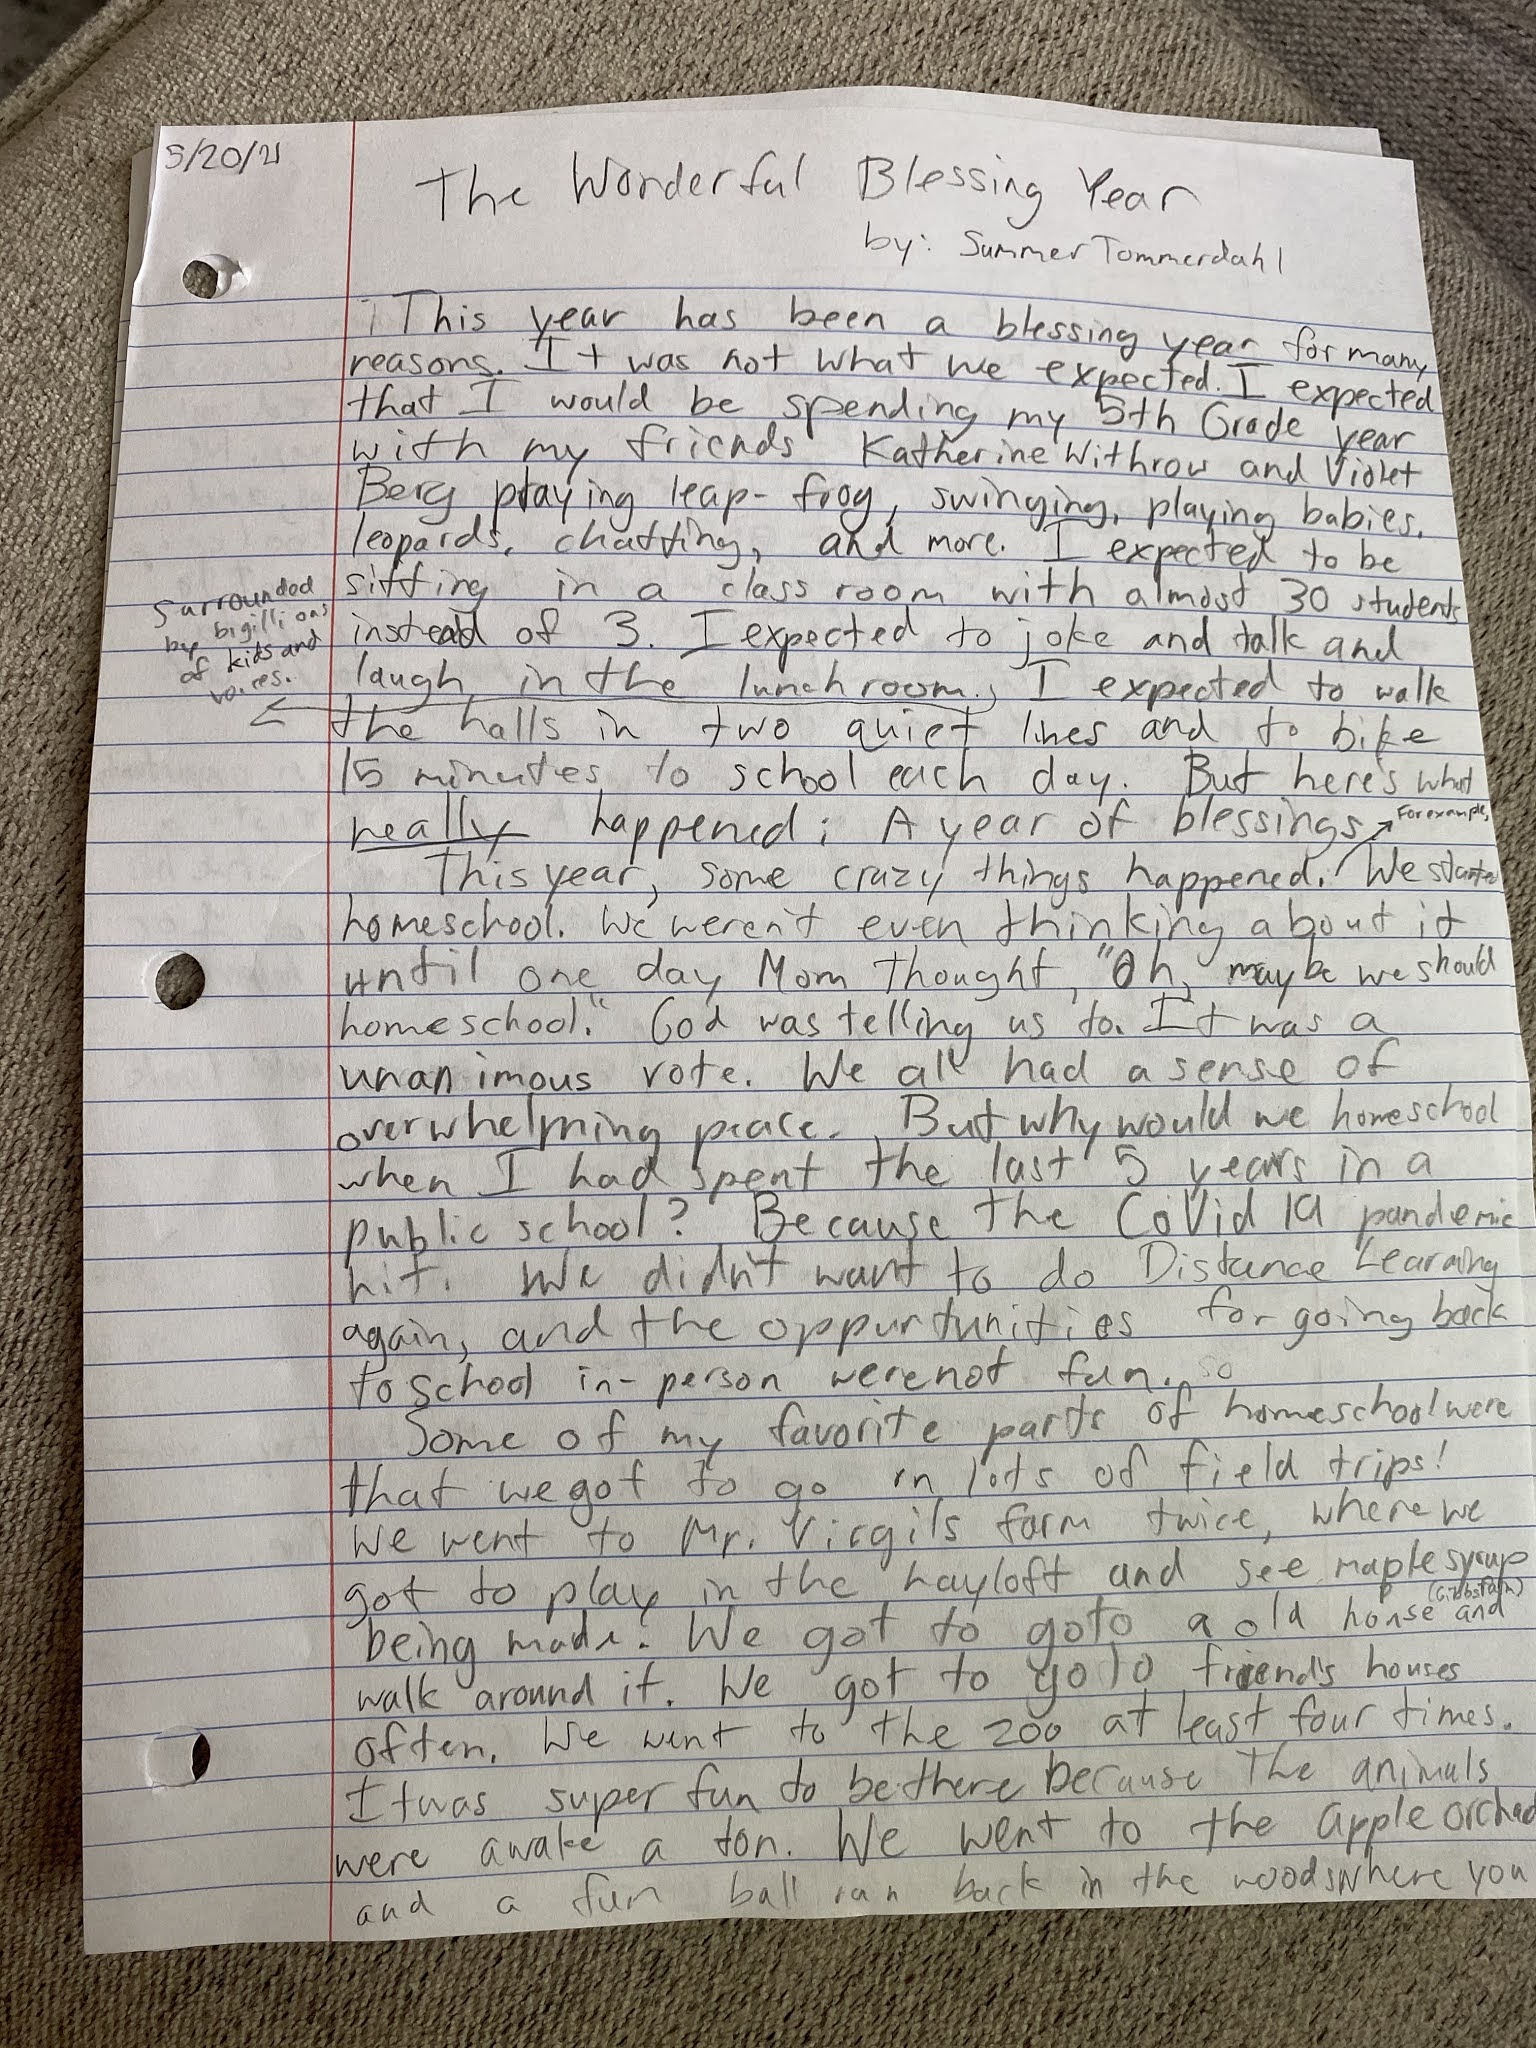 5/20/21
The Wonderful Blessing Year
by: Summer Tommerdahl
This year has been a blessing year for many
reasons. It was not what we expected. I expected
that I would be spending my 5th Grade year
with my friends Katherine Withrow and Violet
Berg playing leap-frog, swinging, playing babies,
leopards, chatting, and more. I expected to be
sitting in a class room with almost 30 students
instead of 3. I expected to joke and talk and
laugh in the lunch room, I expected to walk
surrounded
by bigillions
of kids and
voices.
the halls in two quiet lines and to bike
15 minutes to school each day. But here's what
really happened: A year of blessings
For example,
This year, some crazy things happened. We started
homeschool. We weren't even thinking about it
until one day Mom thought, "Oh, maybe we should
homeschool." God was telling us to. It was a
unanimous vote. We all had a sense of
overwhelming peace. But why would we homeschool
when I had spent the last 5 years in a
public school? Because the CoVid 19 pandemic
hit. We didn't want to do Distance Learning
again, and the oppurtunities for going back
to school in-person were not fun. so
Some of my favorite parts of homeschool were
that we got to go on lots of field trips!
We went to Mr. Virgil's farm twice, where we
got to play in the hayloft and see maple syrup
being made. We got to go to a old house and
(Gibbs Farm)
walk around it. We got to go to friend's houses
often. We went to the zoo at least four times.
It was super fun to be there because the animals
were awake a ton. We went to the apple orchard
and a fun ball run back in the woods where you